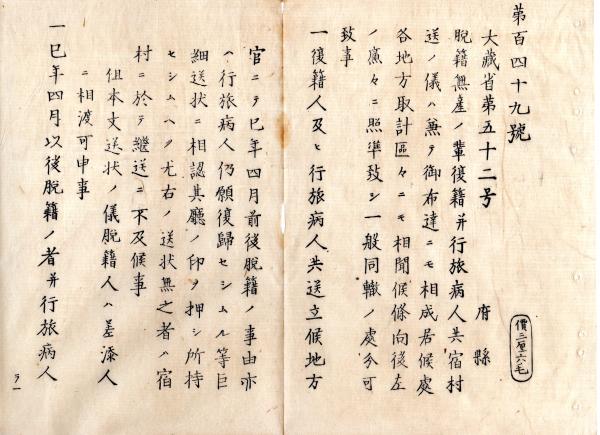 第百四十九號
價三厘六毛
大藏省第五十二号
府縣
脱籍無産ノ輩復籍并行旅病人共宿村
送ノ儀ハ兼テ御布達ニモ相成居候處
各地方取計區々ニモ相聞候條向後左
ノ廉々ニ照準致シ一般同轍ノ處分可
致事
一復籍人及ヒ行旅病人共送立候地方
官ニテ巳年四月前後脱籍ノ事由亦
ハ行旅病人仍願復歸セシムル等巨
細送状ニ相認其廳ノ印ヲ押シ所持
セシムヘク尤右ノ送状無之者ハ宿
村ニ於テ繼送ニ不及候事
但本文送状ノ儀脱籍人ハ差添人
ニ相渡可申事
一巳年四月以後脱籍ノ者并行旅病人